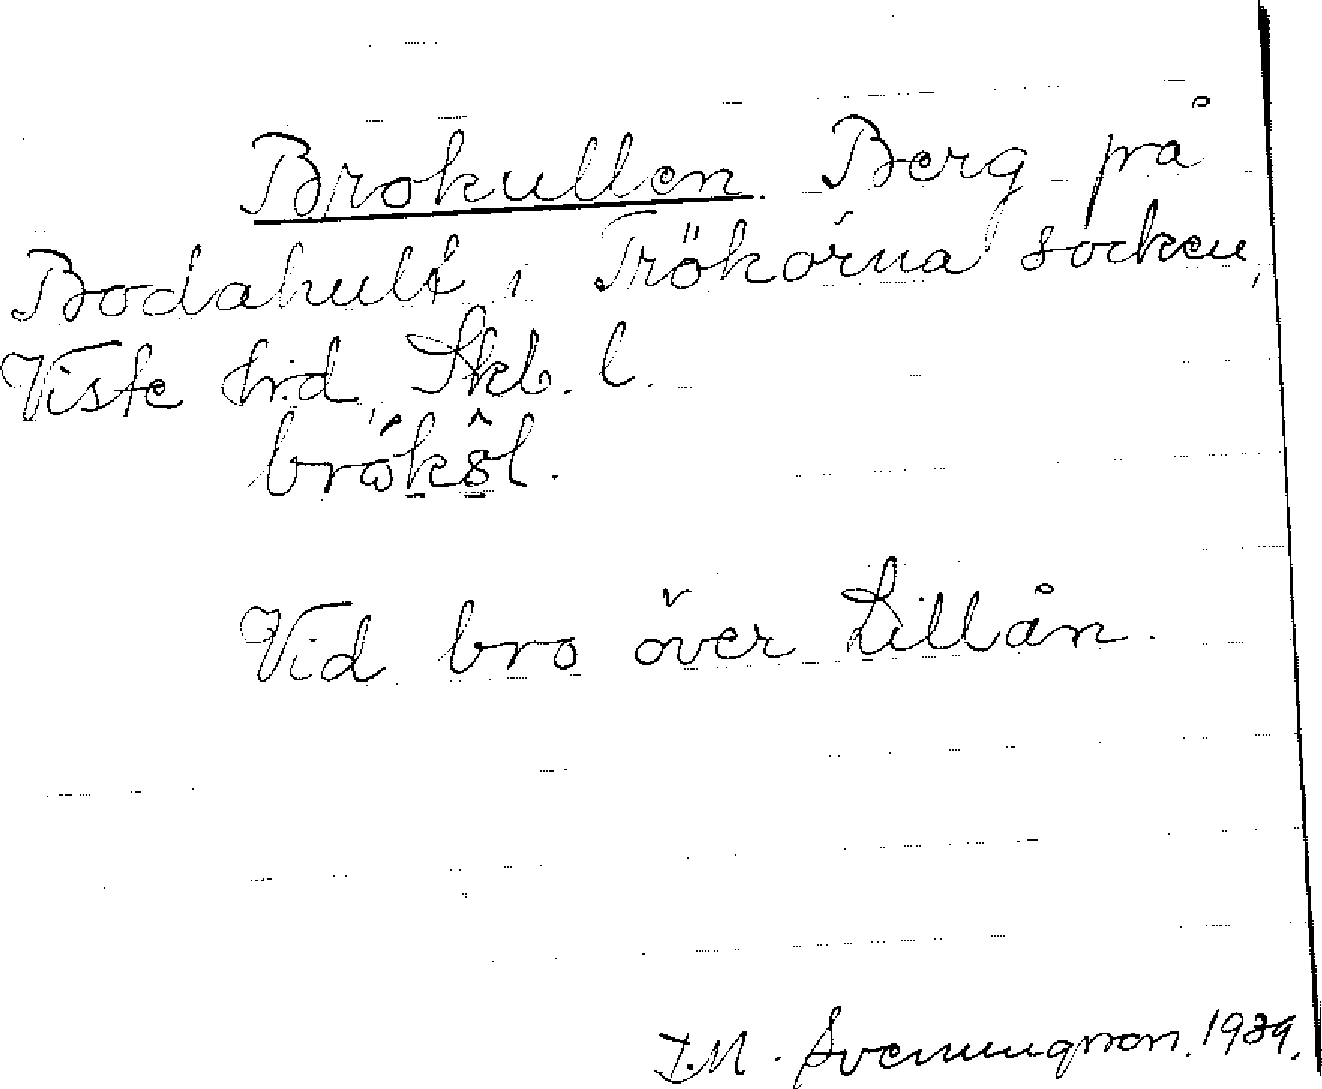 Brokullen. Berg på
Bodahult i Trökörna socken,
Viste hrd, Skb. l.
Vid bro över Lillån.
J.M. Svenungsson. 1939.